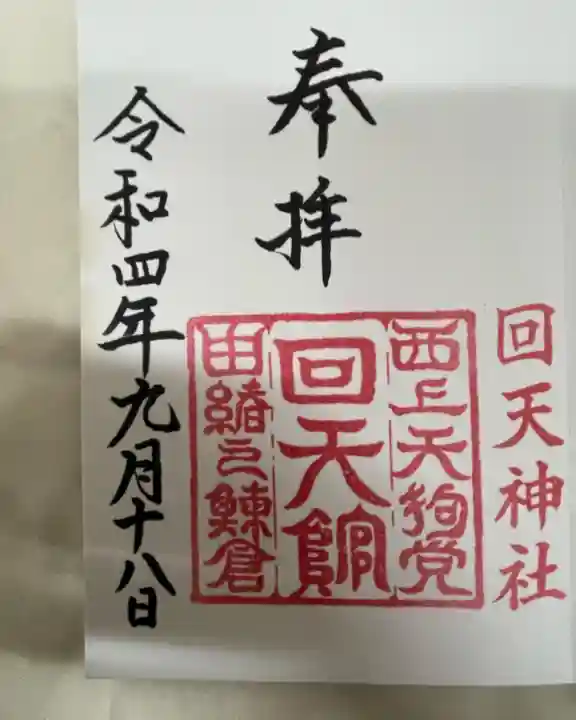 回天神社
奉拝
西上天狗党
回天館
由緒之鰊倉
令和四年九月十八日